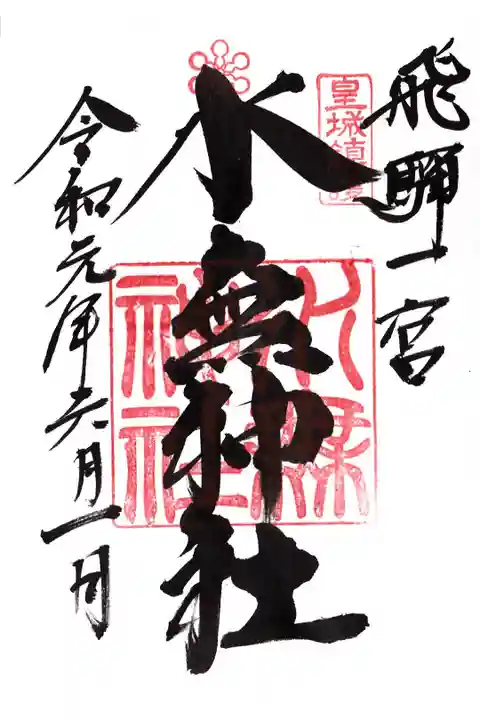 飛騨一宮
皇城鎮護
水無神社
神社
令和元年六月一日